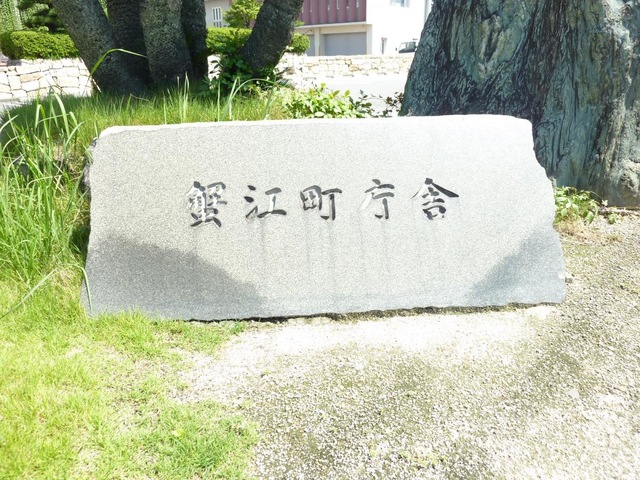 蟹江町庁舎